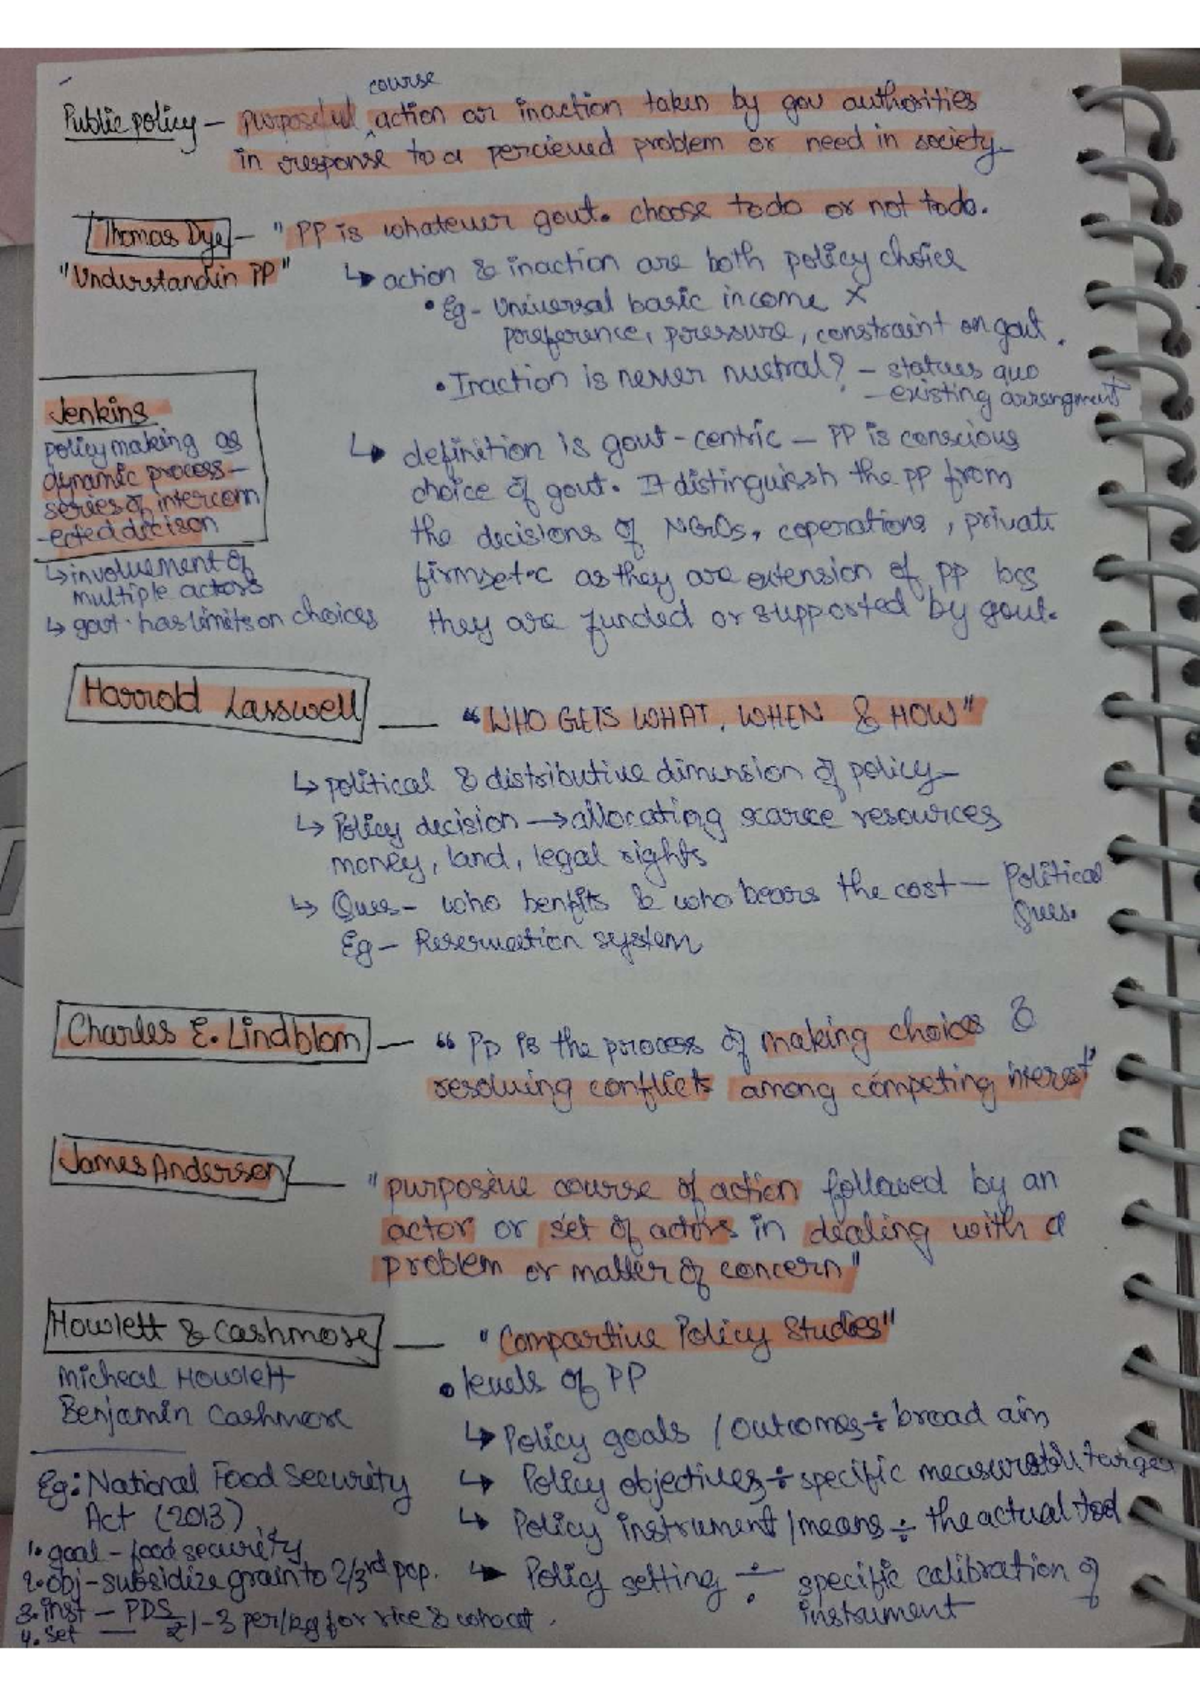 course
Public policy – purposeful action or inaction taken by gov authorities
in response to a percieved problem or need in society.
Thomas Dye – "PP is whatever govt. choose to do or not to do.
"Understandin PP"
↳ action & inaction are both policy choice
• Eg – Universal basic income X
preference, pressure, constraint on govt.
• Inaction is never nuetral? – statues quo
– existing arrangment
Jenkins
policy making as
dynamic process –
series of intercon
-ected decison
↳ involvement of
multiple actors
↳ govt. has limits on choices
↳ definition is govt-centric – PP is conscious
choice of govt. It distinguissh the pp from
the decisions of NGOs, coperations, private
firms etc as they are extension of pp bcs
they are funded or supposted by govt.
Harrold Lasswell — "WHO GETS WHAT, WHEN & HOW"
↳ political & distributive dimension of policy –
↳ Policy decision → allocating scarce resources
money, land, legal rights
↳ Ques – who benfits & who bears the cost – Political
Ques.
Eg – Reservation system
Charles E. Lindblom — "PP is the process of making choice &
resolving conflicts among competing interest"
James Anderson — "purposive course of action followed by an
actor or set of actors in dealing with a
problem or matter of concern"
Howlett & Cashmore — "Compartive Policy Studies"
Micheal Howlett
Benjamin Cashmore
• levels of PP
↳ Policy goals / outcomes ÷ broad aim
↳ Policy objectives ÷ specific measurable target
↳ Policy instrument / means ÷ the actual tool
↳ Policy setting ÷ specific calibration of
instrument
Eg: National Food Security
Act (2013)
1. goal – food security
2. obj – subsidize grain to 2/3rd pop.
3. inst — PDS
4. set — 2/-3 per/kg for rice & wheat.